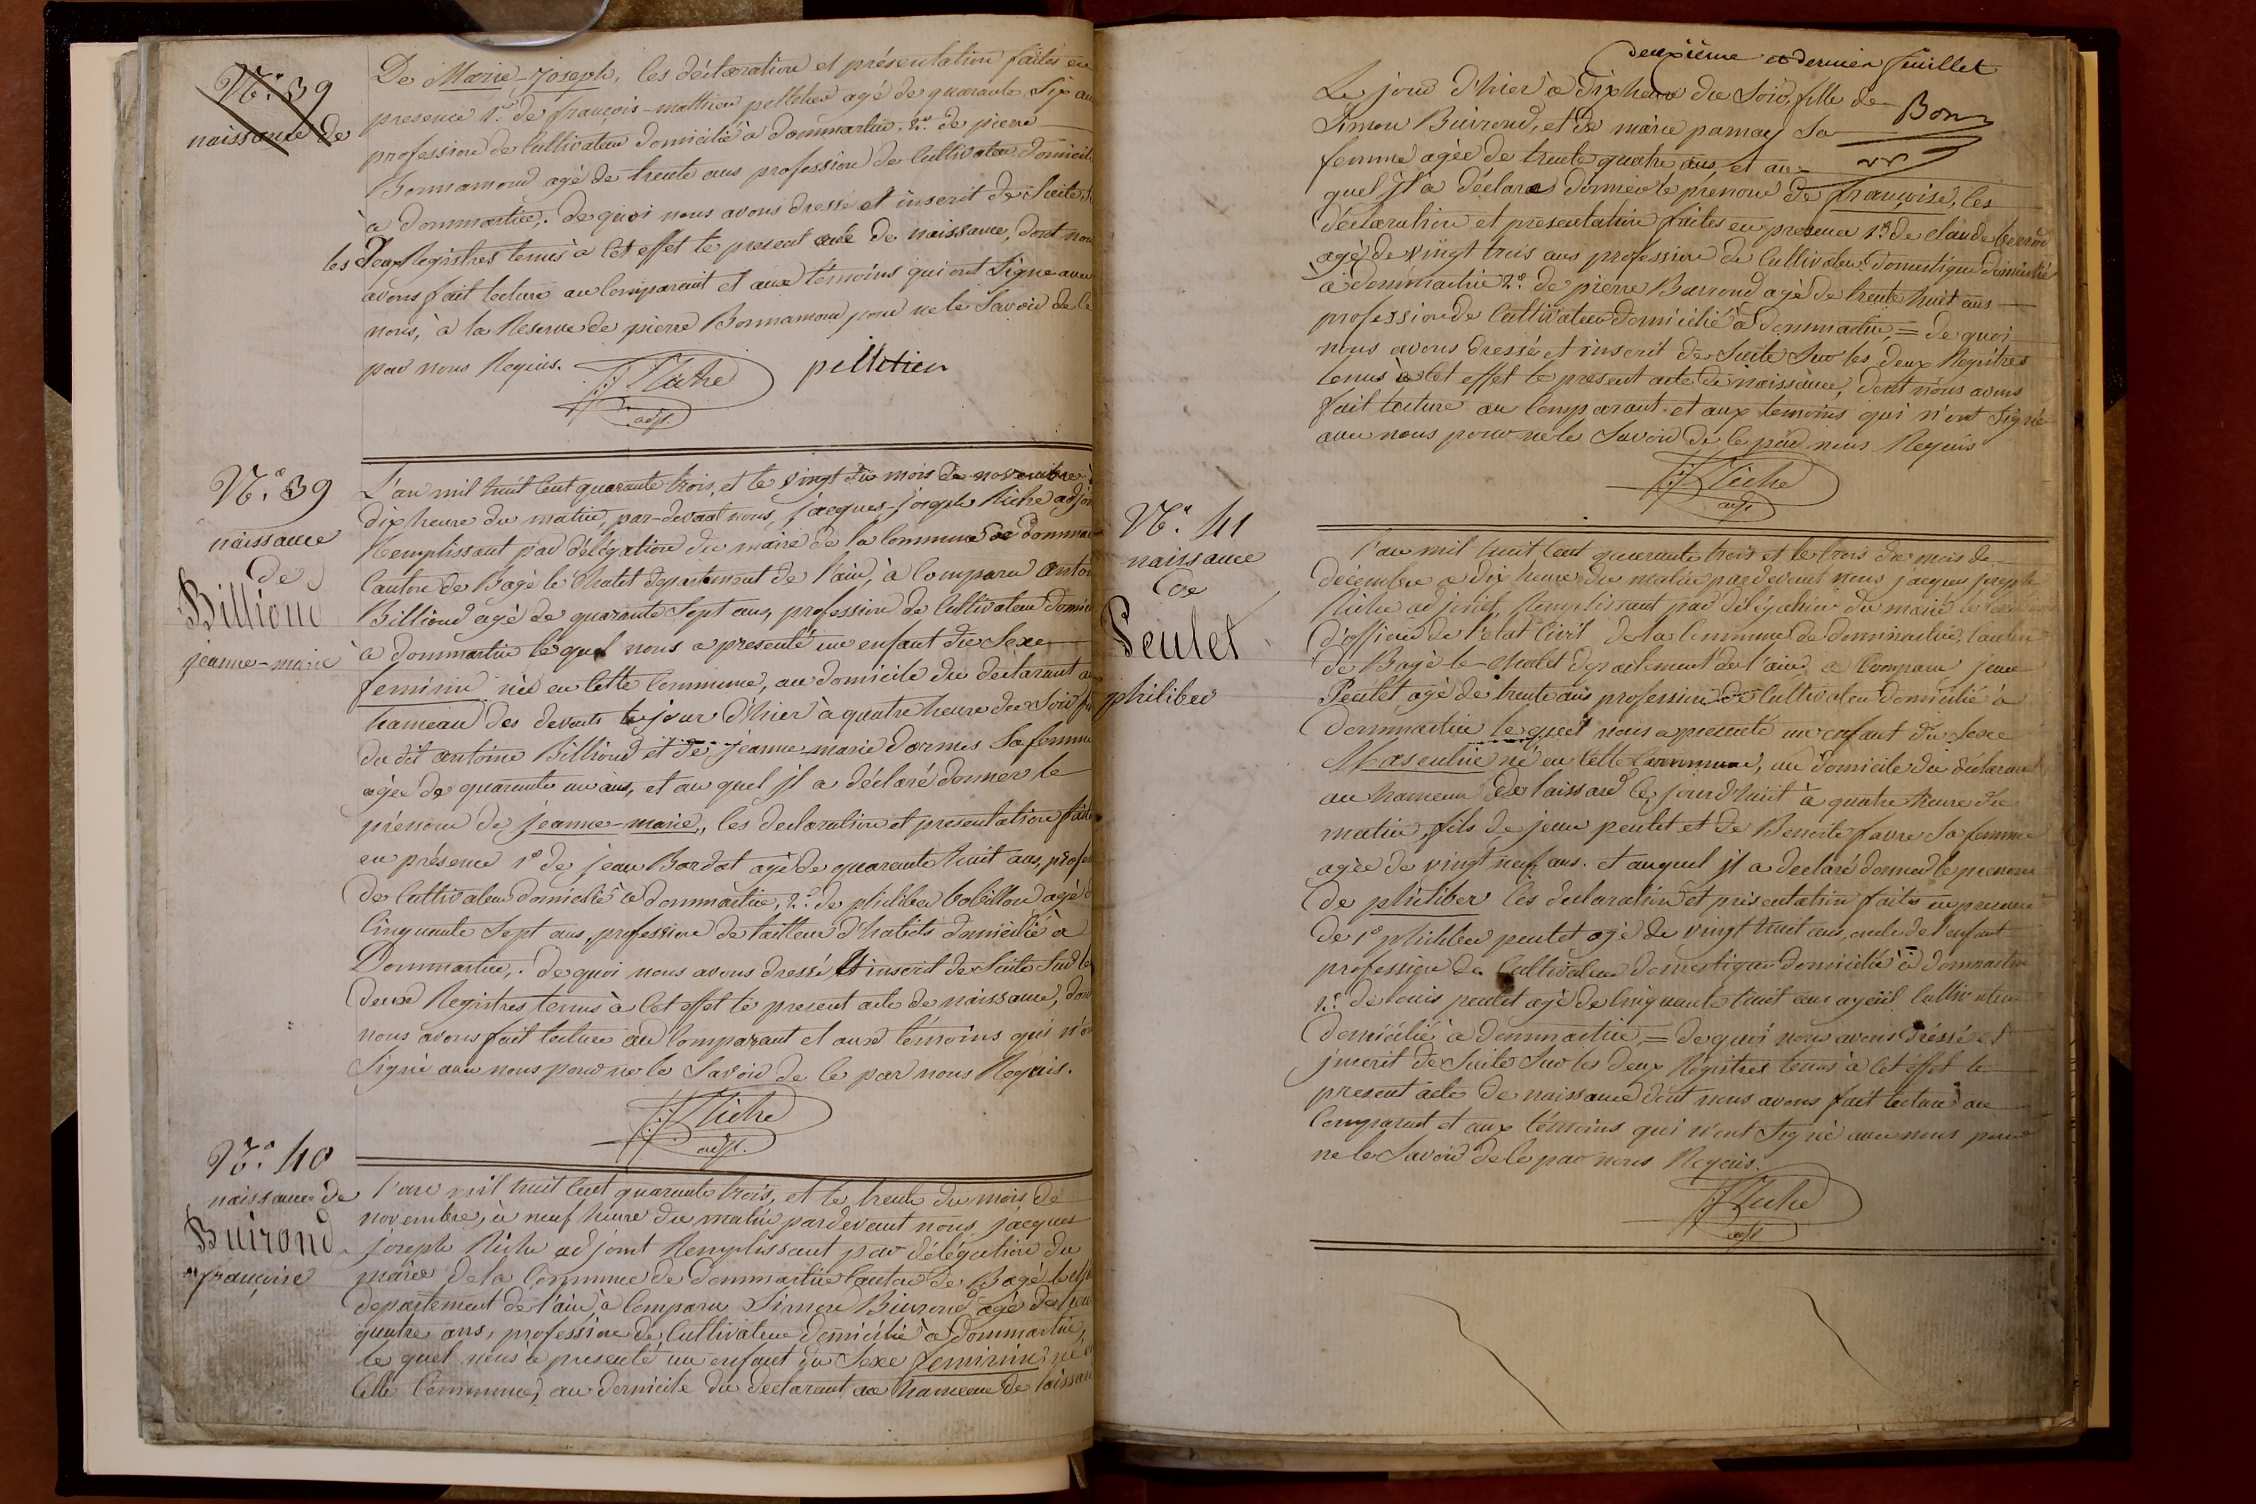 N.° 39
naissance de
De Marie-Joseph, les déclaration et présentation faites en
presence 1.° de françois-mathieu pelletier agé de quarante Six an
profession de Cultivateur domicilié à dommartin, 2.° de pierre
Bonnamour agé de trente ans profession de Cultivateur domicil
à dommartin,. de quoi nous avons dressé et inscrit de Suite,
les deux Registres tenus à Cet effet le present acte de naissance, dont nou
avons fait lecture au Comparant et aux témoins qui ont Signé avec
nous, à la Reserve de pierre Bonnamour pour ne le Savoir de Ce
par nous Requis.
JJ Riche pelletier
adj.
N.° 39
naissance
de
Billioud
jeanne-marie
L'an mil huit Cent quarante trois, et le vingt du mois de novembre à
dix heure du matin, par-devant nous, jacques-joseph Riche adjoi
Remplissant par délégation du maire de la Commune de dommar
Canton de Bagé le Chatel departement de l'ain, à Comparu antoi
Billioud agé de quarante Sept ans, profession de Cultivateur domici
à dommartin le quel nous a presenté un enfant du Sexe
feminin né en Cette Commune, au domicile du declarant au
hameau des devants le jour d'hier à quatre heure du Soir fil
du dit antoine Billioud et de jeanne-marie dormes Sa femme
agée de quarante un ans, et au quel jl a déclaré donner le
prénom de jeanne-marie,, les declaration et presentation faite
en présence 1° de jean Bardot agé de quarante huit ans, profes
de Cultivateur domicilié à dommartin, 2.° de philiber bobillon agé d
Cinquante Sept ans, profession de tailleur d'habits domicilié à
Dommartin,. de quoi nous avons dressé et inscrit de Suite Sur le
deux Registres tenus à Cet effet le present acte de naissance, don
nous avons fait lecture au Comparant et aux témoins qui n'on
Signé avec nous pour ne le Savoir de Ce par nous Requis.
JJ Riche
adj.
N.° 40
naissance de
Buirond
françoise
L'an mil huit Cent quarante trois, et le trente du mois de
novembre, à neuf heure du matin pardevant nous jacques
joseph Riche adjoint Remplissant par délégation du
maire de la Commune de dommartin Canton de Bagé le Ch
departement de l'ain, à Comparu Simon Buirond agé de tren
quatre ans, profession de Cultivateur domicilié à dommartin,
le quel nous a presenté un enfant du Sexe feminin né e
Cette Commune, au domicile du declarant au hameau de loissar
deuxième et dernier feuillet
Bon
Le jour d'hier à dix heure du Soir, fille de
Simon Buirond, et de marie pamay Sa
femme agée de trente quatre ans, et au-
quel jl a déclaré donner le prenom de françoise, les
déclaration et presentation faites en presence 1.° de claude
agé de vingt trois ans profession de Cultivateur domestique domicilié
à dommartin 2.° de pierre Barroud agé de trente huit ans
profession de Cultivateur domicilié à dommartin, = de quoi
nous avons dressé et inscrit de Suite Sur les deux Registres
tenus à Cet effet le present acte de naissance, dont nous avons
fait lecture au Comparant et aux temoins qui n'ont Signé
avec nous pour ne le Savoir de Ce par nous Requis
JJ Riche
adj.
N.° 41
naissance
de
Peulet
philiber
L'an mil huit Cent quarante trois et le trois du mois de
décembre a dix heure du matin pardevant nous jacques joseph
Riche adjoint, Remplissant par délégation du maire les fonctions
d'officier de l'état Civil de la Commune de dommartin, Canton
de Bagé le-chatel departement de l'ain, a Comparu jean
Peulet agé de trente ans profession de Cultivateur domicilié à
Dommartin le quel nous a presenté un enfant du Sexe
Masculin né en Cette Commune, au domicile du déclarant
au hameau de loissard Ce jourd'huit à quatre heure du
matin, fils de jean peulet et de Benoite favre Sa femme
agée de vingt neuf ans. et auquel jl a declaré donner le prenom
de philiber les declaration et présentation faites en presence
de 1° philiber peulet agé de vingt huit ans, oncle de l'enfant
profession de Cultivateur domestique domicilié à dommartin
2.° de louis peulet agé de Cinquante huit ans ayeul Cultivateur
domicilié à dommartin = de quoi nous avons dréssé et
jnscrit de Suite Sur les deux Registres tenus à Cet effet le
present acte de naissance dont nous avons fait lecture au
Comparant et aux témoins qui n'ont Signé avec nous pour
ne le Savoir de Ce par nous Requis.
JJ Riche
adj